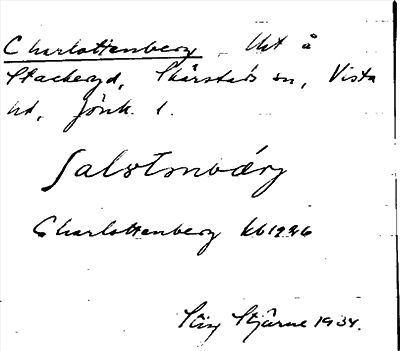 Charlottenberg Ust å
Stackeryd, Skärstads sn, Vista
hd, Jönk. l.
Salstmvärg
Charlottenberg kb 1946
Stig Stjärne 1934.